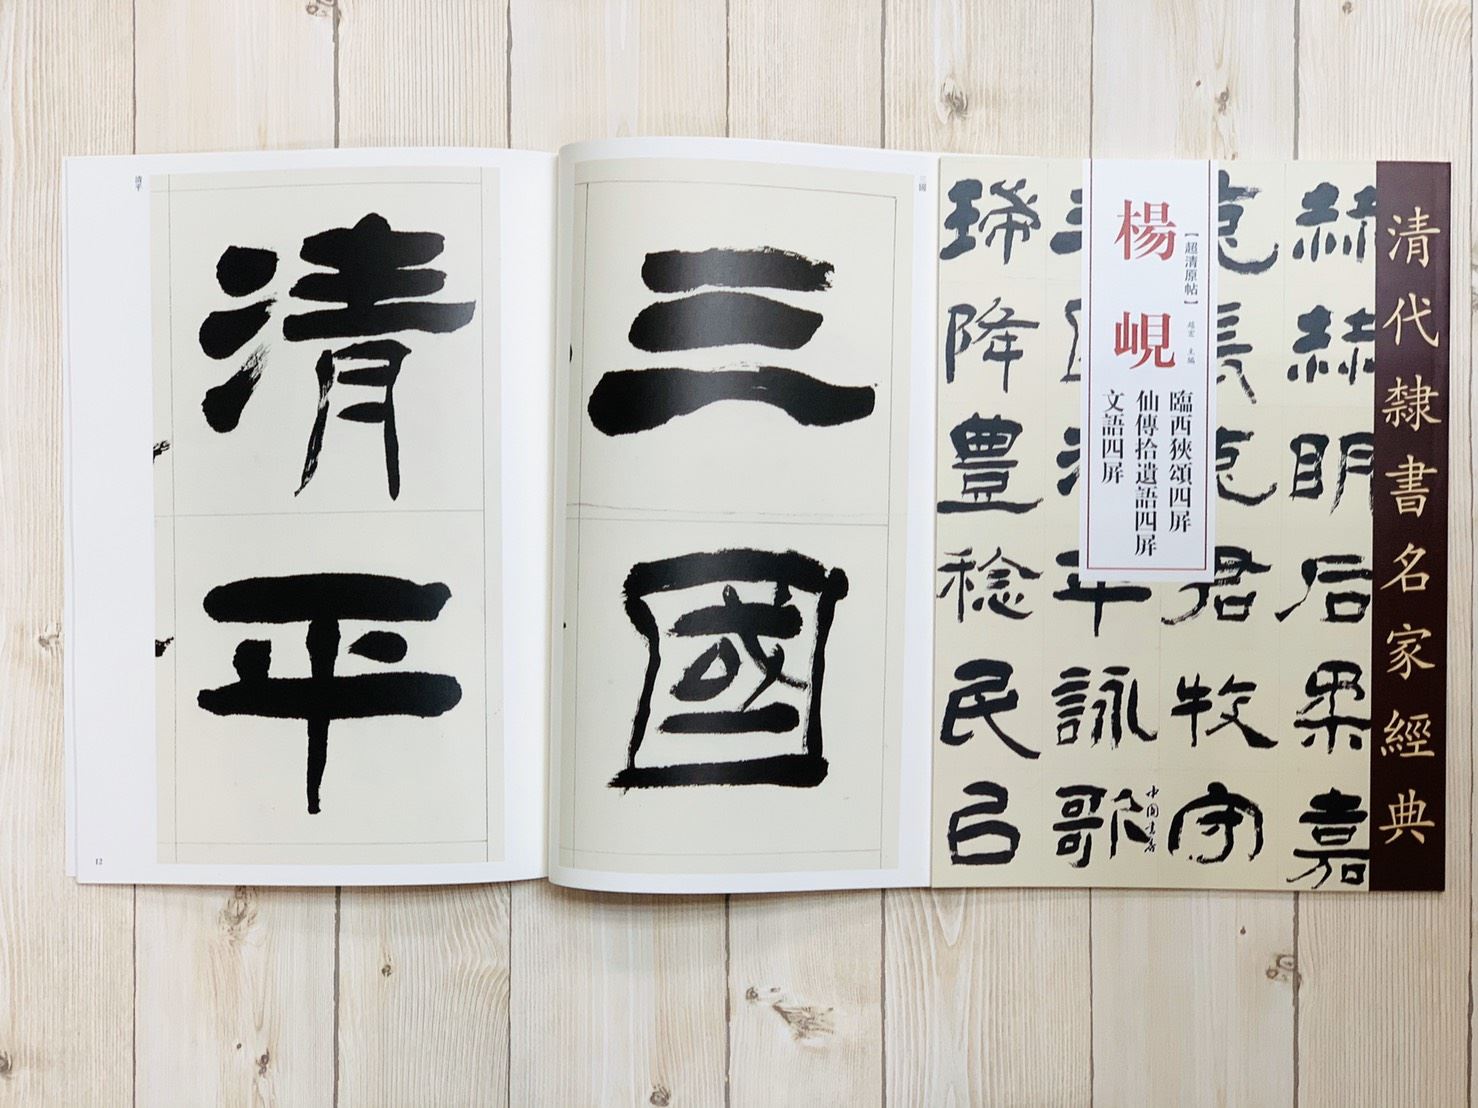 清代隸書名家經典
赫赫明后柔嘉
克長克君牧守
三國清平詠歌
瑞降豐稔民以
【超清原帖】
趙宏 主編
楊峴
臨西狹頌四屏
仙傳拾遺語四屏
文語四屏
中國書店
三國
三國
清平
清平
12